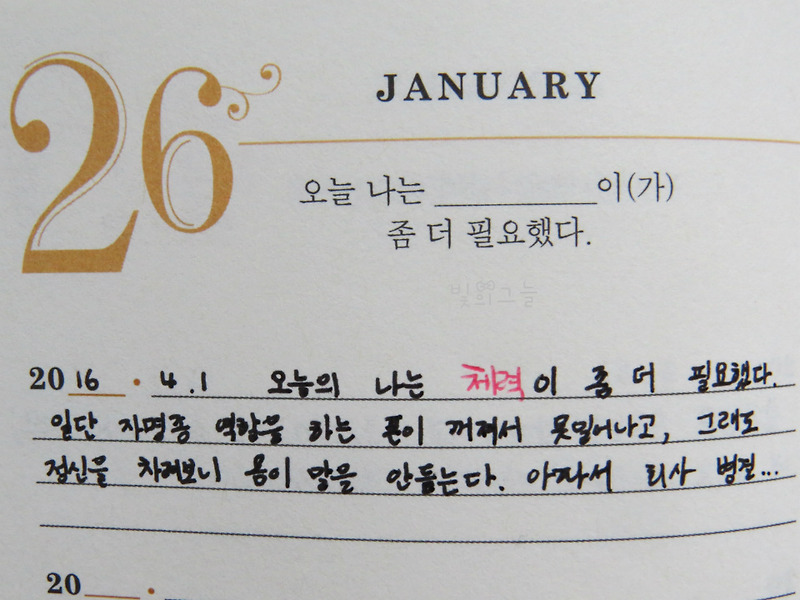 26
JANUARY
오늘 나는 ____________이(가)
좀 더 필요했다.
빛의그늘
2016 · 4.1 오늘의 나는 체력이 좀 더 필요했다.
일단 자명종 역할을 하는 폰이 꺼져서 못일어나고, 그래도
정신을 차려보니 몸이 말을 안듣는다. 아파서 회사 병결...
20___ ·